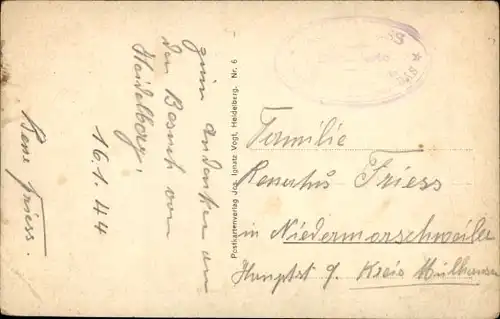 zum Andenken an
den Besuch von
Heidelberg,
16.1.44
Bene Friess.
Postkartenverlag Jos. Ignatz Vogt, Heidelberg. Nr. 6
Familie
Friess
in Niedermorschweiler
Hauptst 9. Kreis Mülhausen